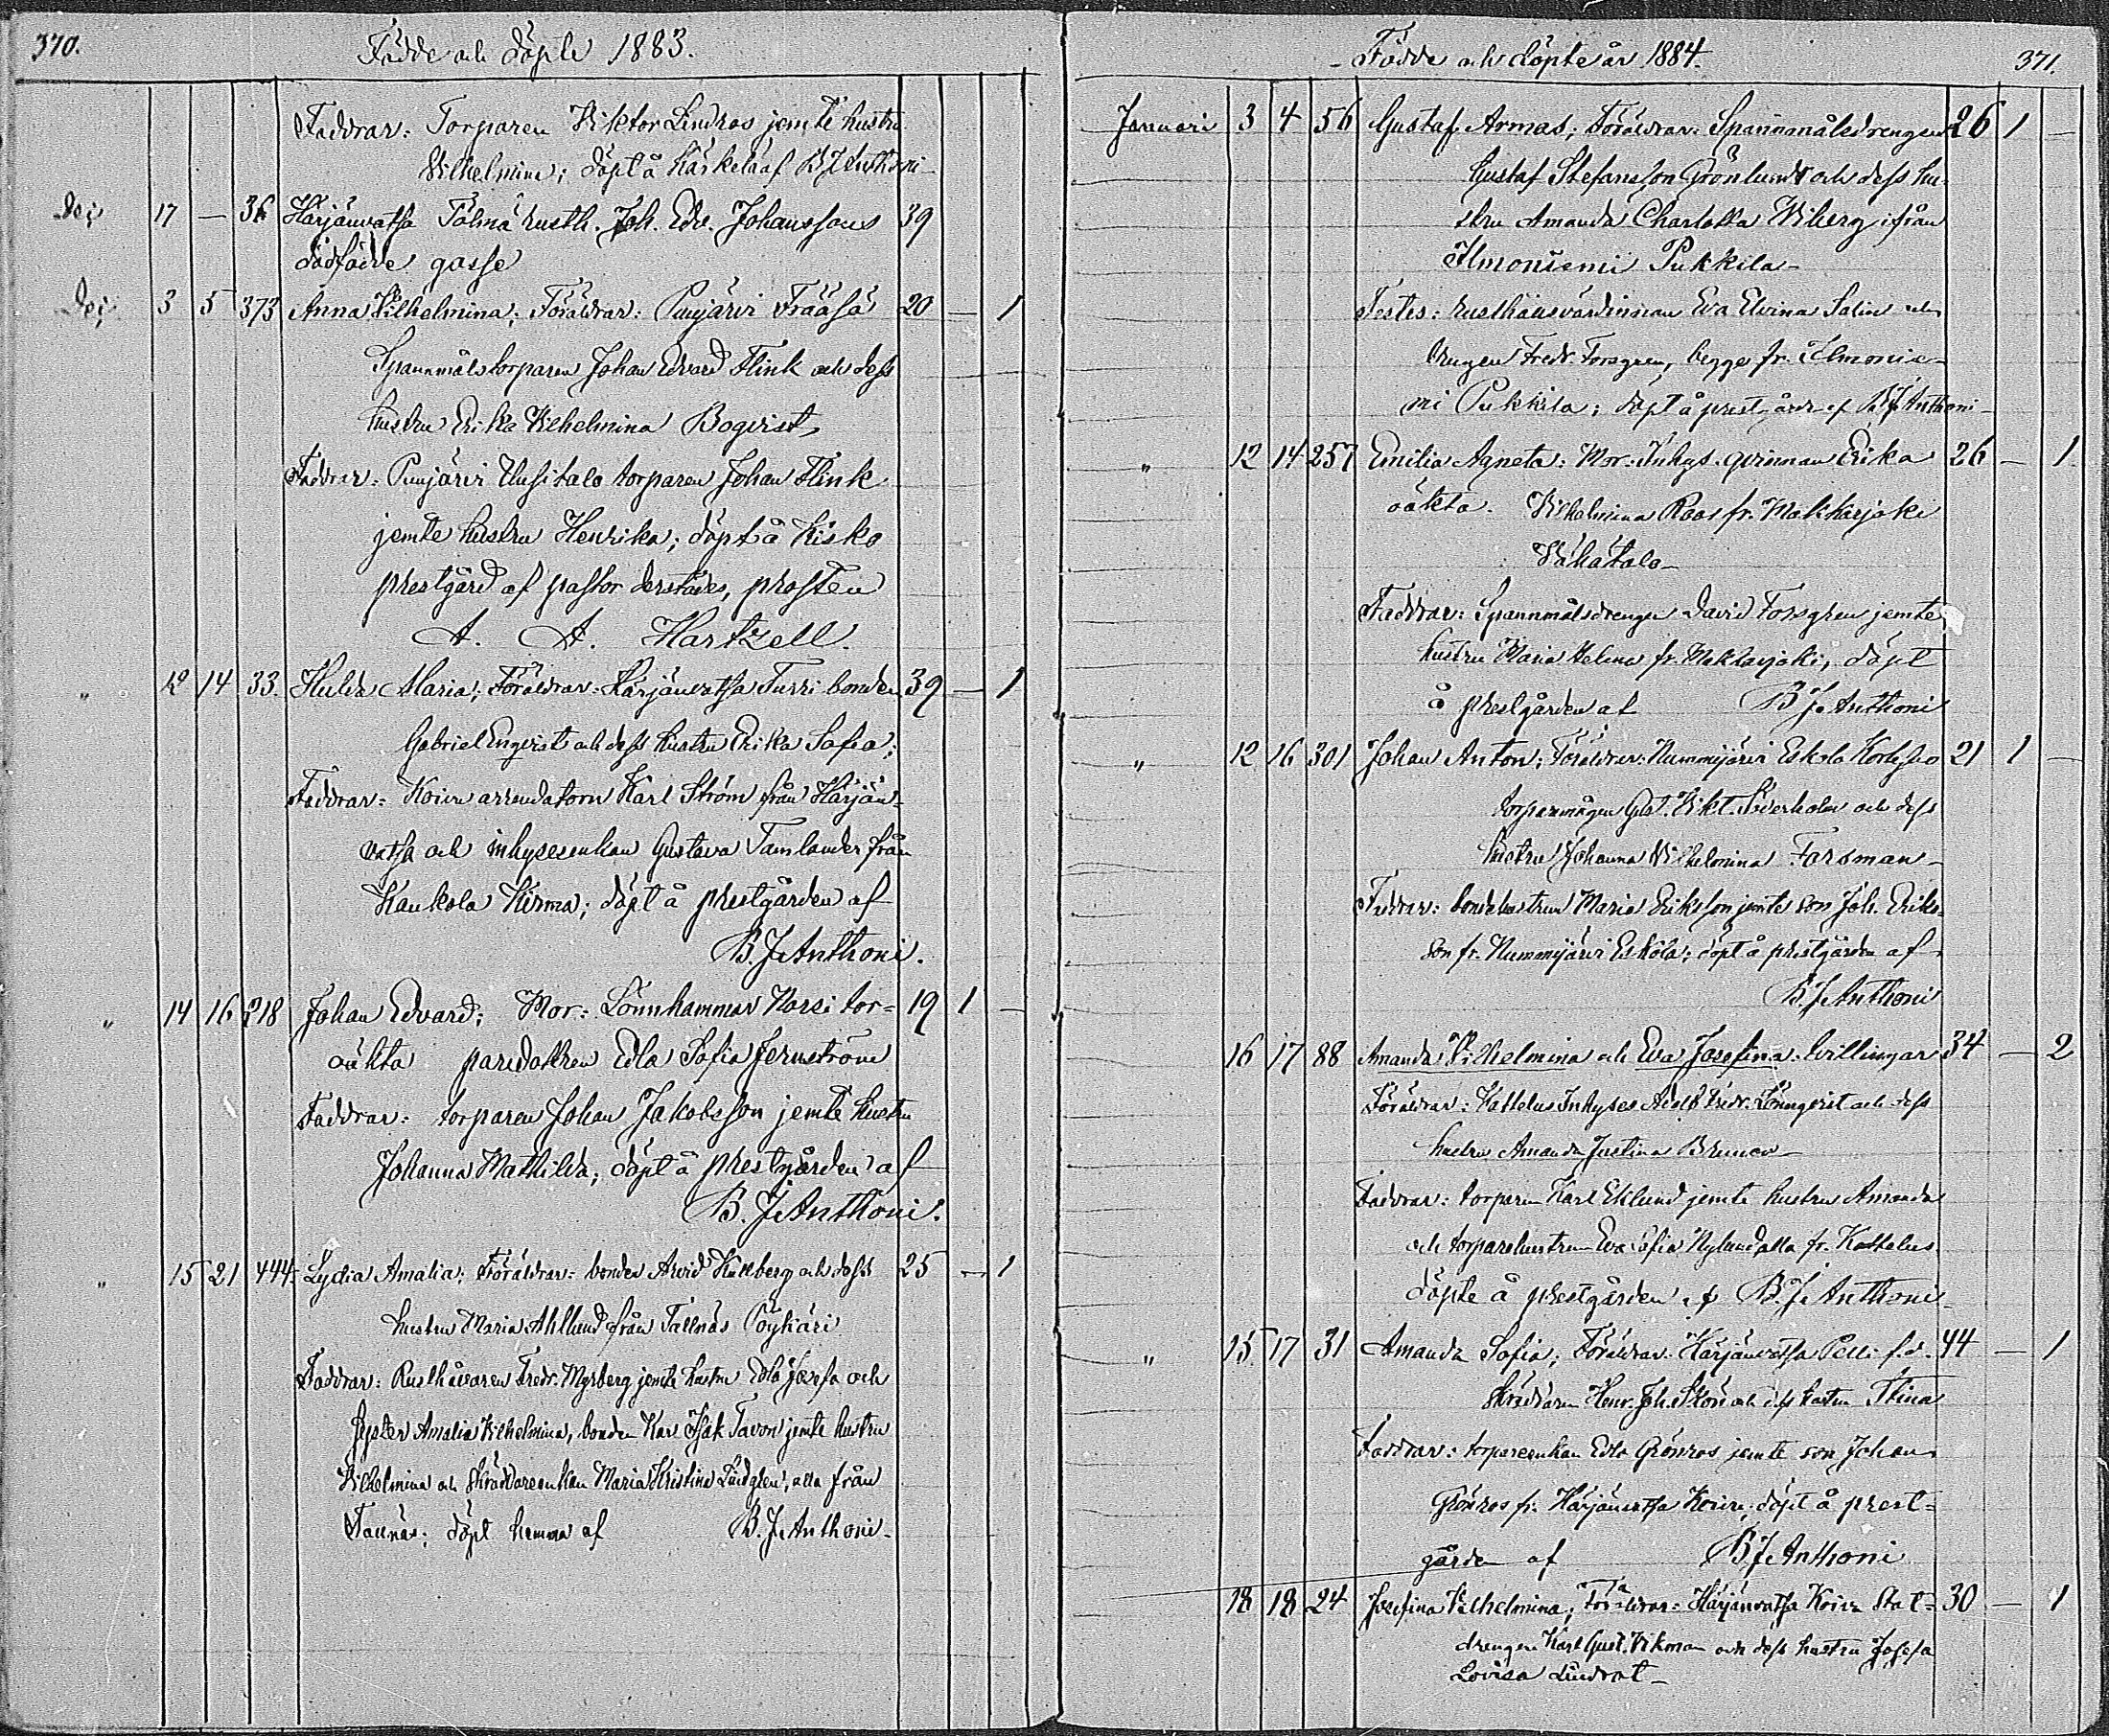 370.
Födde och döpte 1883.
Faddrar: Torparen Viktor Lindros jemte hustru
Vilhelmina; döpt å Härkelä af B J Anthoni
Dec; 17 — 36 Härjänvatsa Tölmä rusth. Joh. Edv. Johanssons 39
dödfödde gosse
Dec; 3 5 373 Anna Vilhelmina; Föräldrar: Punjärvi Frääsä 20 — 1
Spannmålstorparen Johan Edvard Flink och dess
hustru Erika Vilhelmina Boqvist
Faddrar: Punjärvi Uusitalo torparen Johan Flink
jemte hustru Henrika; döpt å Kisko
prestgård af pastor derstädes, prosten
A. A. Hartzell.
" 12 14 33. Hulda Maria; Föräldrar: Härjänvatsa Turri bonden 39 — 1
Gabriel Enqvist och dess hustru Erika Sofia;
Faddrar: Koivu arrendatorn Karl Ström från Härjän-
vatsa och inhysesenkan Gustava Tamlander från
Haukola Hirma; döpt å prestgården af
B. J. Anthoni.
" 14 16 218 Johan Edvard; Mor: Lönnhammar Norsi tor- 19 1 —
oäkta paredottren Edla Sofia Jernström
Faddrar: torparen Johan Jakobsson jemte hustru
Johanna Mathilda; döpt å prestgården af
B. J. Anthoni.
" 15 21 444. Lydia Amalia; Föräldrar: bonden Arvid Kullberg och dess 25 — 1
hustru Maria Ahllund från Tallnäs Pöykäri
Faddrar: Rusthållaren Fredr. Myrberg jemte hustru Edla Josefa och
syster Amalia Vilhelmina, bonden Karl Isak Tavon jemte hustru
Vilhelmina och skräddareenkan Maria Kristina Lindgren, alla från
Tallnäs; döpt hemma af B. J. Anthoni.
Födde och döpte år 1884.
371.
Januari 3 4 56 Gustaf Armas; Föräldrar: Spannmålsdrengen 26 1 —
Gustaf Stefansson Grönlund och dess hu-
stru Amanda Charlotta Viberg ifrån
Ilmoniemi Pukkila
Testes: rusthållsvärdinnan Eva Elvina Salin och
drengen Fredr. Forsgren, begge fr. Ilmonie-
mi Pukkila; döpt å prestgården af B J Anthoni
" 12 14 257 Emilia Agneta: Mor: Inhys. qvinnan Erika 26 — 1.
oäkta. Vilhelmina Roos fr. Makkarjoki
Vähätalo
Faddrar: Spannmålsdrengen David Forsgren jemte
hustru Maria Helena fr. Makkarjoki, döpt
å prestgården af B J. Anthoni
" 12 16 301 Johan Anton; Föräldrar: Nummijärvi Eskola 21 1 —
torparemågen Gust. Vikt. Söderholm och dess
hustru Johanna Vilhelmina Forsman
Faddrar: bondehustrun Maria Eriksson jemte son Joh. Eriks-
son fr. Nummijärvi Eskola; döpt å prestgården af
B J. Anthoni
16 17 88 Amanda Vilhelmina och Eva Josefina: tvillingar 34 — 2
Föräldrar: Kattelus Inhyses Adolf Fredr. Lönnqvist och dess
hustru Amanda Justina Brunow
Faddrar: torparen Karl Eklund jemte hustru Amanda
och torparehustrun Eva Sofia Nylund alla fr. Kattelus
döpte å prestgården af B. J. Anthoni
" 15 17 31 Amanda Sofia; Föräldrar: Härjänvatsa Pelli f.d. 44 — 1
skräddaren Henr. Joh. Skön och dess hustru Stina
Faddrar: torpareenkan Edla Grönros jemte son Johan
Grönros fr. Härjänvatsa Koivu; döpt å prest-
gården af B J. Anthoni
18 18 24 Josefina Vilhelmina; Föräldrar: Härjänvatsa Koivu Stat- 30 — 1
drengen Karl Gust. Vikman och dess hustru Josefa
Lovisa Lindrot